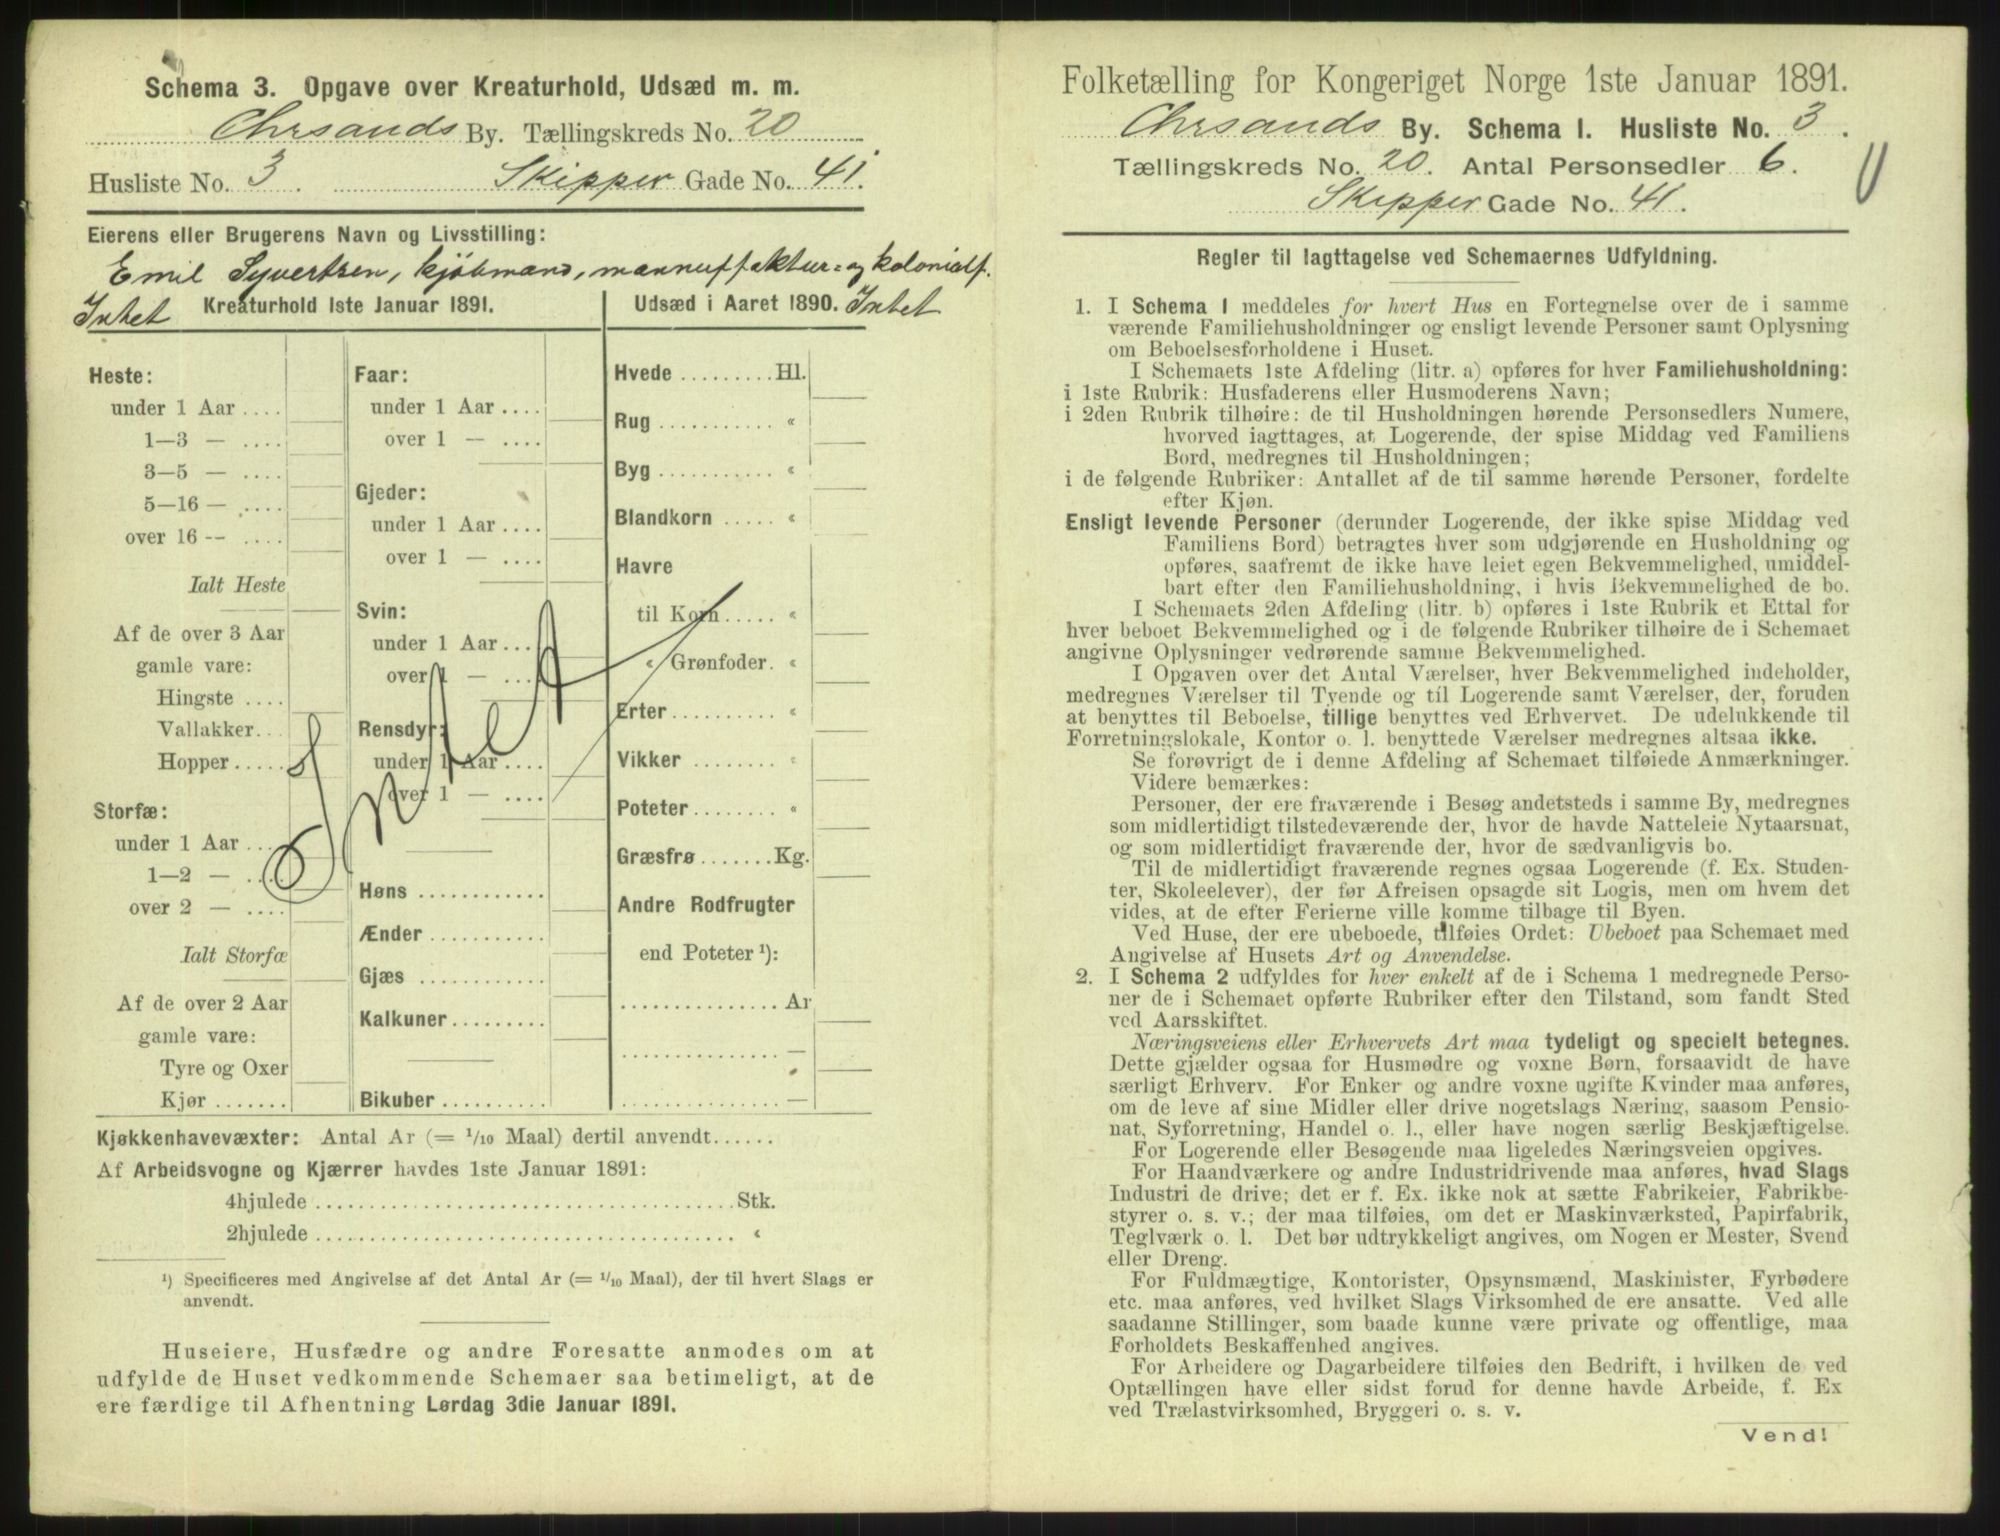 Schema 3. Opgave over Kreaturhold, Udsæd m. m.
Chrsands By. Tællingskreds No. 20
Husliste No. 3. Skipper Gade No. 41.
Eierens eller Brugerens Navn og Livsstilling:
Emil Syvertsen, kjøbmand, mannuffaktur= og kolonialf.
Intet Kreaturhold 1ste Januar 1891.
Heste:
under 1 Aar ....
1—3 — ....
3—5 — ....
5—16 — ....
over 16 -- ....
Ialt Heste
Af de over 3 Aar
gamle vare:
Hingste ....
Vallakker...
Hopper .....
Storfæ:
under 1 Aar ...
1—2 — ....
over 2 — ....
Ialt Storfæ
Af de over 2 Aar
gamle vare:
Tyre og Oxer
Kjør .......
Faar:
under 1 Aar ....
over 1 — ....
Gjeder:
under 1 Aar ....
over 1 — ....
Svin:
under 1 Aar ...
over 1 — ....
Rensdyr:
under 1 Aar ....
over 1 — ....
Intet
Høns ............
Ænder ...........
Gjæs ............
Kalkuner.........
Bikuber ..........
Udsæd i Aaret 1890. Intet
Hvede .........Hl.
Rug ........... "
Byg ........... "
Blandkorn ..... "
Havre
til Korn..... "
" Grønfoder. "
Erter.......... "
Vikker ........ "
Poteter........ "
Græsfrø .......Kg.
Andre Rodfrugter
end Poteter ¹):
............... Ar
............... —
............... —
Kjøkkenhavevæxter: Antal Ar (= 1/10 Maal) dertil anvendt......
Af Arbeidsvogne og Kjærrer havdes 1ste Januar 1891:
4hjulede .......................................Stk.
2hjulede ....................................... "
¹) Specificeres med Angivelse af det Antal Ar (= 1/10 Maal), der til hvert Slags er
anvendt.
Huseiere, Husfædre og andre Foresatte anmodes om at
udfylde de Huset vedkommende Schemaer saa betimeligt, at de
ere færdige til Afhentning Lørdag 3die Januar 1891.
Folketælling for Kongeriget Norge 1ste Januar 1891.
Chrsands By. Schema I. Husliste No. 3.
Tællingskreds No. 20. Antal Personsedler 6.
Skipper Gade No. 41.
Regler til Iagttagelse ved Schemaernes Udfyldning.
1. I Schema 1 meddeles for hvert Hus en Fortegnelse over de i samme
værende Familiehusholdninger og ensligt levende Personer samt Oplysning
om Beboelsesforholdene i Huset.
I Schemaets 1ste Afdeling (litr. a) opføres for hver Familiehusholdning:
i 1ste Rubrik: Husfaderens eller Husmoderens Navn;
i 2den Rubrik tilhøire: de til Husholdningen hørende Personsedlers Numere,
hvorved iagttages, at Logerende, der spise Middag ved Familiens
Bord, medregnes til Husholdningen;
i de følgende Rubriker: Antallet af de til samme hørende Personer, fordelte
efter Kjøn.
Ensligt levende Personer (derunder Logerende, der ikke spise Middag ved
Familiens Bord) betragtes hver som udgjørende en Husholdning og
opføres, saafremt de ikke have leiet egen Bekvemmelighed, umiddel-
bart efter den Familiehusholdning, i hvis Bekvemmelighed de bo.
I Schemaets 2den Afdeling (litr. b) opføres i 1ste Rubrik et Ettal for
hver beboet Bekvemmelighed og i de følgende Rubriker tilhøire de i Schemaet
angivne Oplysninger vedrørende samme Bekvemmelighed.
I Opgaven over det Antal Værelser, hver Bekvemmelighed indeholder,
medregnes Værelser til Tyende og til Logerende samt Værelser, der, foruden
at benyttes til Beboelse, tillige benyttes ved Erhvervet. De udelukkende til
Forretningslokale, Kontor o. l. benyttede Værelser medregnes altsaa ikke.
Se forøvrigt de i denne Afdeling af Schemaet tilføiede Anmærkninger.
Videre bemærkes:
Personer, der ere fraværende i Besøg andetsteds i samme By, medregnes
som midlertidigt tilstedeværende der, hvor de havde Natteleie Nytaarsnat,
og som midlertidigt fraværende der, hvor de sædvanligvis bo.
Til de midlertidigt fraværende regnes ogsaa Logerende (f. Ex. Studen-
ter, Skoleelever), der før Afreisen opsagde sit Logis, men om hvem det
vides, at de efter Ferierne ville komme tilbage til Byen.
Ved Huse, der ere ubeboede, tilføies Ordet: Ubeboet paa Schemaet med
Angivelse af Husets Art og Anvendelse.
2. I Schema 2 udfyldes for hver enkelt af de i Schema 1 medregnede Perso-
ner de i Schemaet opførte Rubriker efter den Tilstand, som fandt Sted
ved Aarsskiftet.
Næringsveiens eller Erhvervets Art maa tydeligt og specielt betegnes.
Dette gjælder ogsaa for Husmødre og voxne Børn, forsaavidt de have
særligt Erhverv. For Enker og andre voxne ugifte Kvinder maa anføres,
om de leve af sine Midler eller drive nogetslags Næring, saasom Pensio-
nat, Syforretning, Handel o. l., eller have nogen særlig Beskjæftigelse.
For Logerende eller Besøgende maa ligeledes Næringsveien opgives.
For Haandværkere og andre Industridrivende maa anføres, hvad Slags
Industri de drive; det er f. Ex. ikke nok at sætte Fabrikeier, Fabrikbe-
styrer o. s. v.; der maa tilføies, om det er Maskinværksted, Papirfabrik,
Teglværk o. l. Det bør udtrykkeligt angives, om Nogen er Mester, Svend
eller Dreng.
For Fuldmægtige, Kontorister, Opsynsmænd, Maskinister, Fyrbødere
etc. maa anføres, ved hvilket Slags Virksomhed de ere ansatte. Ved alle
saadanne Stillinger, som baade kunne være private og offentlige, maa
Forholdets Beskaffenhed angives.
For Arbeidere og Dagarbeidere tilføies den Bedrift, i hvilken de ved
Optællingen have eller sidst forud for denne havde Arbeide, f. Ex
ved Trælastvirksomhed, Bryggeri o. s. v.
Vend!